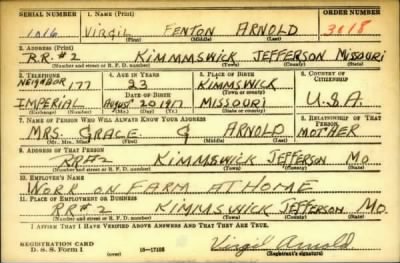 SERIAL NUMBER 1. NAME (Print) ORDER NUMBER
1016 VIRGIL FENTON ARNOLD 3018
(First) (Middle) (Last)
2. ADDRESS (Print)
R.R. #2 KIMMSWICK JEFFERSON MISSOURI
(Number and street or R. F. D. number) (Town) (County) (State)
3. TELEPHONE 4. AGE IN YEARS 5. PLACE OF BIRTH 6. COUNTRY OF CITIZENSHIP
NEIGHBOR 177 23 KIMMSWICK
DATE OF BIRTH (Town or county)
IMPERIAL AUGUST 20 1917 MISSOURI U.S.A.
(Exchange) (Number) (Mo.) (Day) (Yr.) (State or country)
7. NAME OF PERSON WHO WILL ALWAYS KNOW YOUR ADDRESS 8. RELATIONSHIP OF THAT PERSON
MRS. GRACE G ARNOLD MOTHER
(Mr., Mrs., Miss) (First) (Middle) (Last)
9. ADDRESS OF THAT PERSON
RR#2 KIMMSWICK JEFFERSON MO.
(Number and street or R. F. D. number) (Town) (County) (State)
10. EMPLOYER'S NAME
WORK ON FARM AT HOME
11. PLACE OF EMPLOYMENT OR BUSINESS
RR#2 KIMMSWICK JEFFERSON MO.
(Number and street or R. F. D. number) (Town) (County) (State)
I AFFIRM THAT I HAVE VERIFIED ABOVE ANSWERS AND THAT THEY ARE TRUE.
REGISTRATION CARD
D. S. S. Form 1 (over) 16-17105 Virgil Arnold
(Registrant's signature)